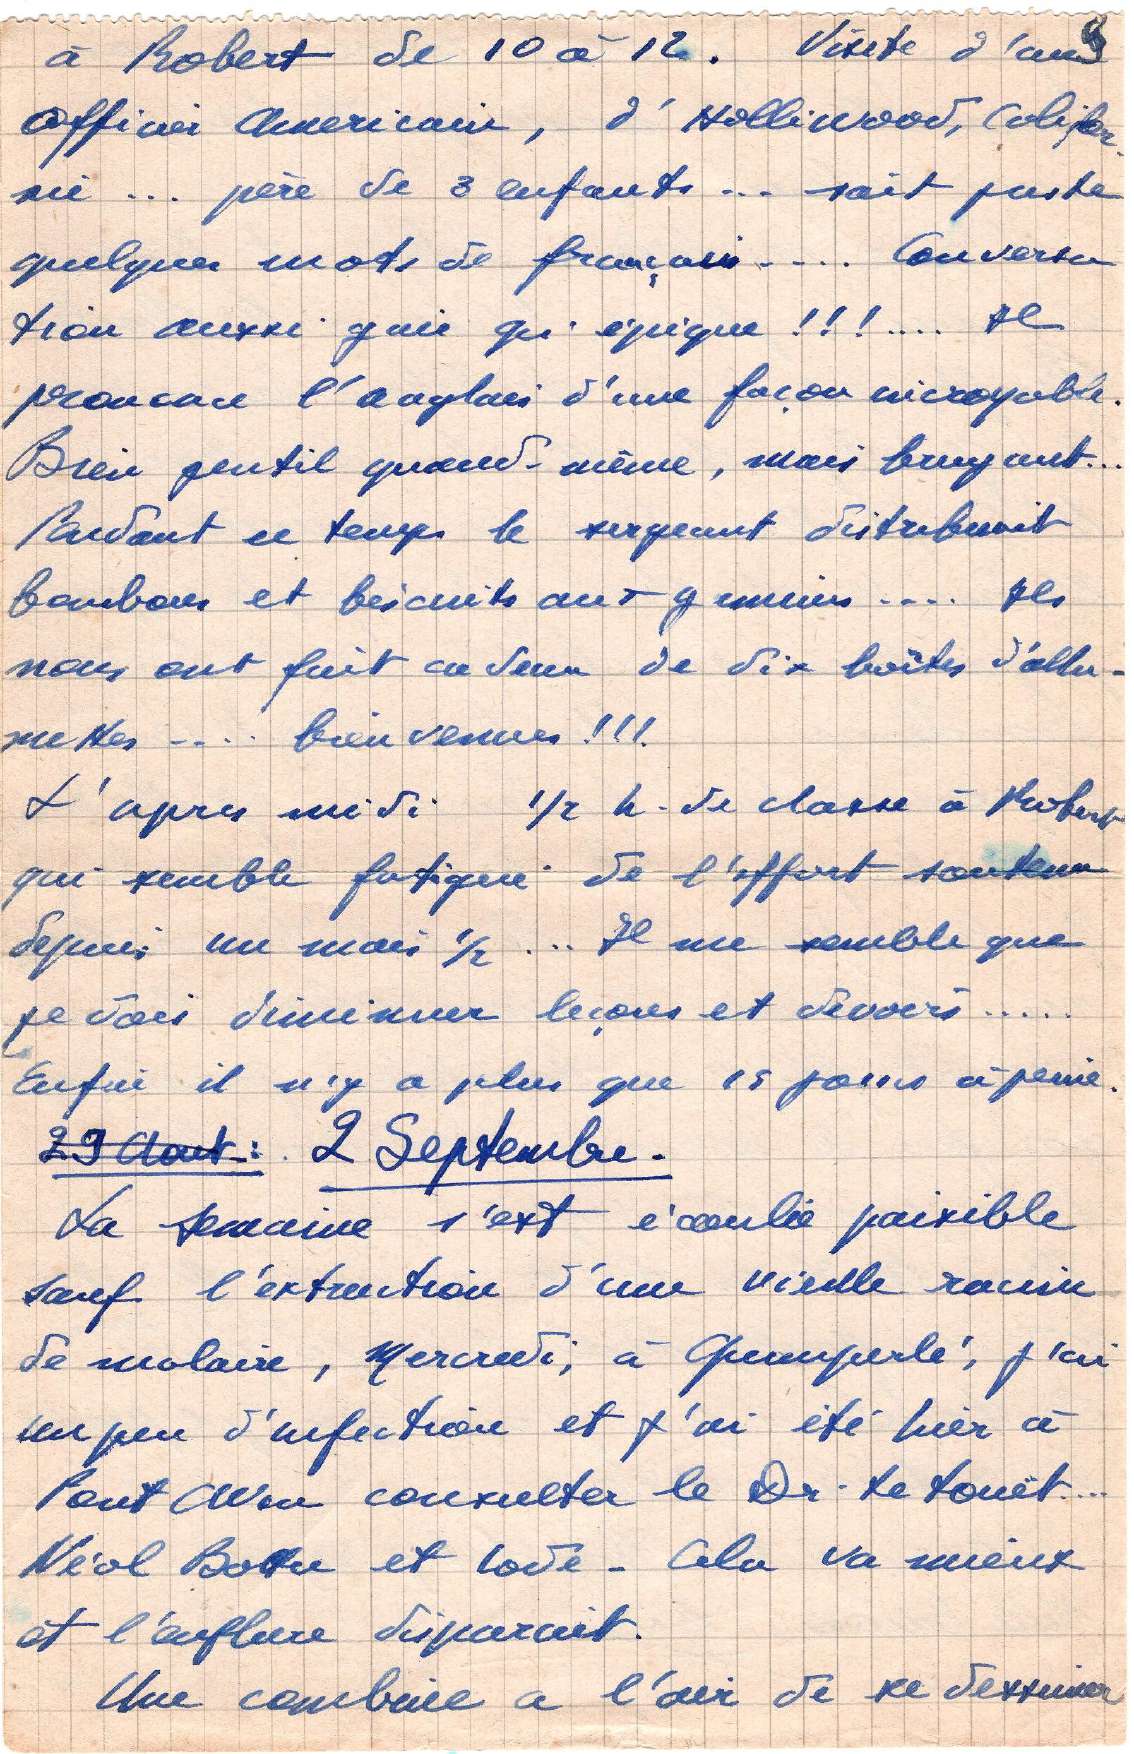 à Robert de 10 à 12. Visite d'un
officier américain, d'Holliwood, Califor-
nie ... père de 3 enfants ... sait juste
quelques mots de français .... Conversa
tion aussi gaie qu'épique !!! .... Il
prononce l'anglais d'une façon incroyable.
Bien gentil quand-même, mais bruyant...
Pendant ce temps le sergeant distribuait
bonbons et biscuits aux gamins .... Ils
nous ont fait cadeau de dix boîtes d'allu-
mettes .... bienvenues !!!
L'après midi 1/2 h. de classe à Robert
qui semble fatigué de l'effort soutenu
depuis un mois 1/2 ... Il me semble que
je dois diminuer leçons et devoirs .....
Enfin il n'y a plus que 15 jours à peine.
29 Aout : 2 Septembre.
La semaine s'est écoulée paisible
sauf l'extraction d'une vieille racine
de molaire, Mercredi, à Quimperlé, j'ai
un peu d'infection et j'ai été hier à
Pont Aven consulter le Dr.
Néol Bottu et iode - Cela va mieux
et l'enflure disparait.
Une combine a l'air de se dessiner